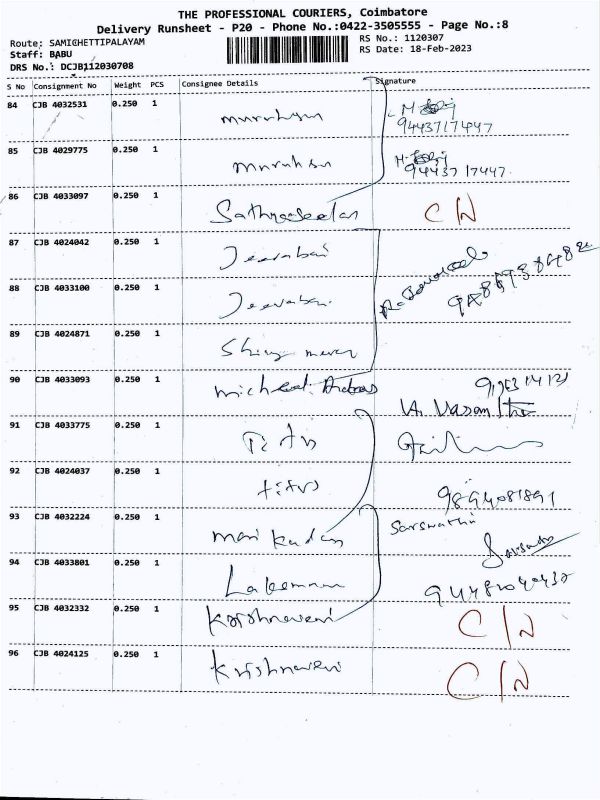 THE PROFESSIONAL COURIERS, Coimbatore
Delivery Runsheet - P20 - Phone No.:0422-3505555 - Page No.:8
Route: SAMICHETTIPALAYAM
RS No.: 1120307
Staff: BABU
RS Date: 18-Feb-2023
DRS No.: DCJB112030708
S No Consignment No Weight PCS Consignee Details Signature
84 CJB 4032531 0.250 1 Muruhsun M
9443717447
85 CJB 4029775 0.250 1 muruhsu M
9443717447
86 CJB 4033097 0.250 1 Sathyaseelan C/N
87 CJB 4024042 0.250 1 Jeevabai
88 CJB 4033100 0.250 1 Jeevabai
89 CJB 4024871 0.250 1
90 CJB 4033093 0.250 1 Micheal
91 CJB 4033775 0.250 1 Titus
92 CJB 4024037 0.250 1 titus 9894081891
93 CJB 4032224 0.250 1 Mari Sarswathi
94 CJB 4033801 0.250 1
95 CJB 4032332 0.250 1 Krishnaveni C/N
96 CJB 4024125 0.250 1 Krishnaveni C/N